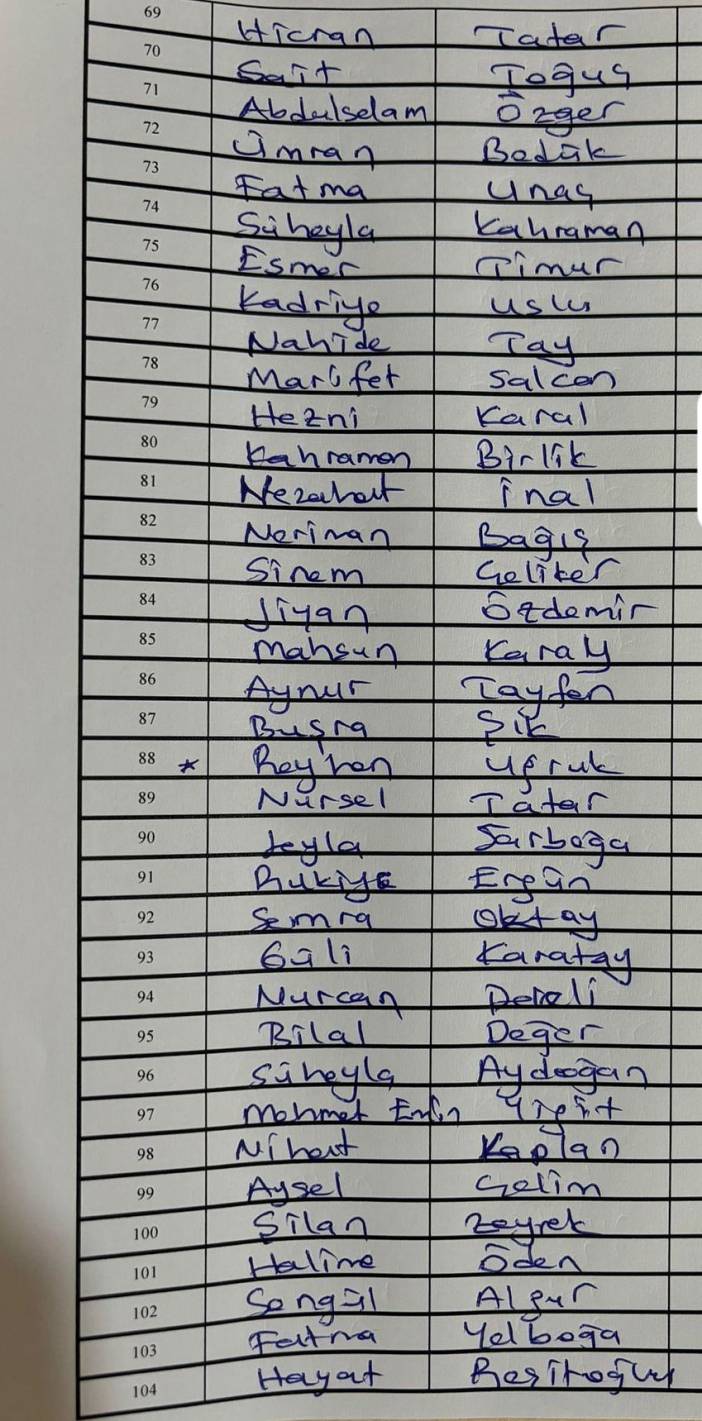 69 Hicran Tatar
70 Sait Toğuş
71 Abdulselam Özger
72 Ümran Bedük
73 Fatma Unaş
74 Süheyla Kahraman
75 Esmer Timur
76 Kadriye Uslu
77 Nahide Tay
78 Marifet Salcan
79 Hezni Karal
80 Kahraman Birlik
81 Nezahat İnal
82 Neriman Bağış
83 Sinem Çeliker
84 Jiyan Özdemir
85 Mahsun Karay
86 Aynur Tayfan
87 Buşra Şık
88 * Reyhan Uğruk
89 Nursel Tatar
90 Leyla Sarboğa
91 Rukiye Ergün
92 Semra Oktay
93 Güli Karatay
94 Nurcan Dereli
95 Bilal Değer
96 Süheyla Aydoğan
97 Mehmet Emin Yiğit
98 Nihat Kaplan
99 Aysel Çelim
100 Şilan Zeyrek
101 Halime Öden
102 Songül Algur
103 Fatma Yelboğa
104 Hayat Reşitoğlu